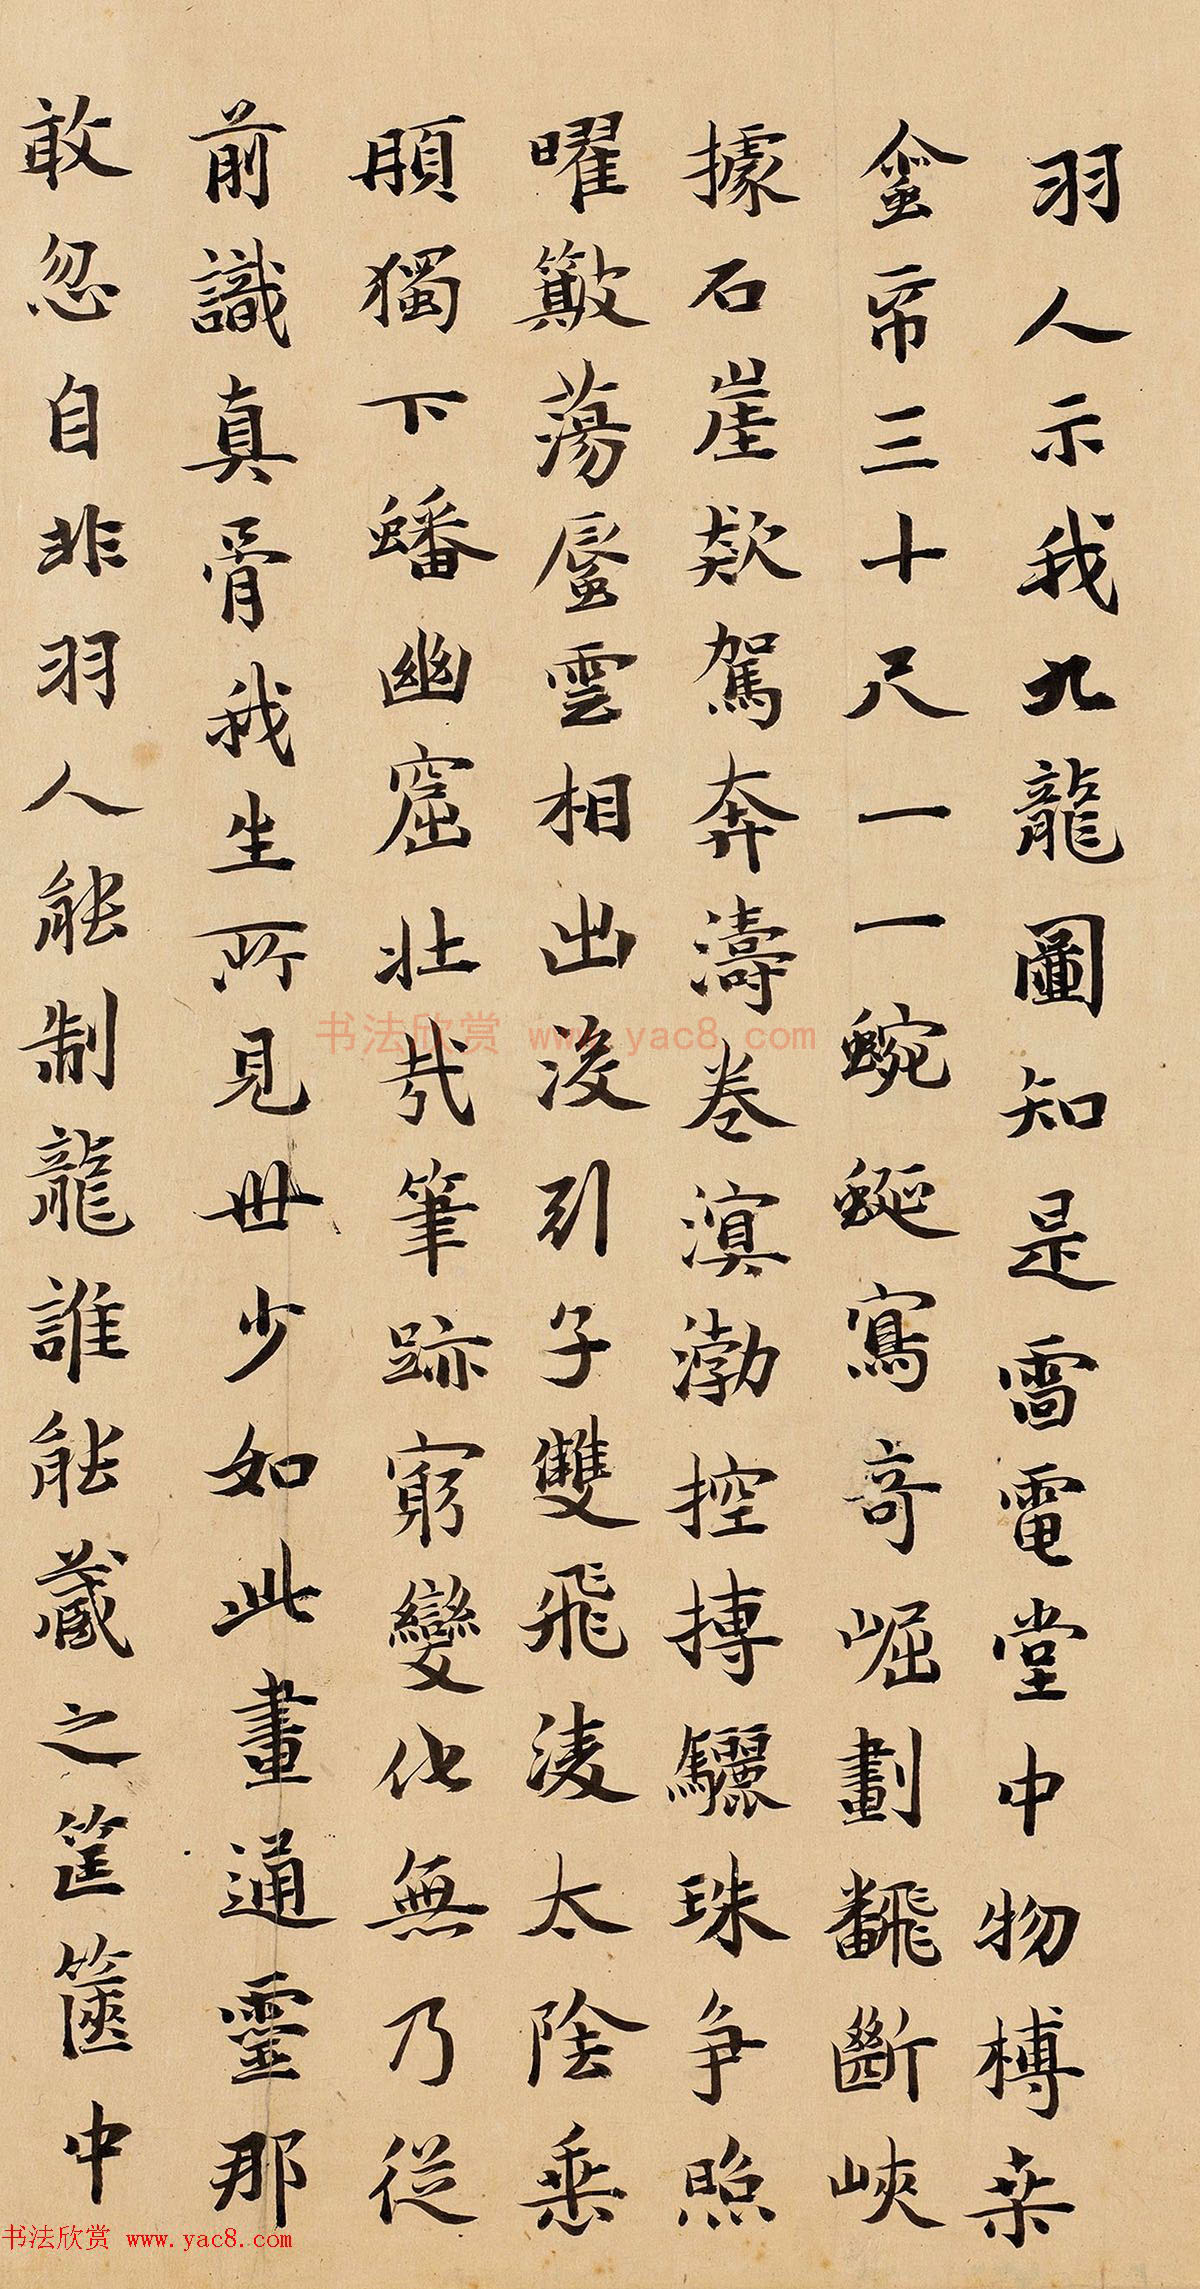 羽人示我九龍圖知是雷電堂中物榑桒
蚕帋三十尺一一蜿蜒寫奇崛劃飜斷峽
據石崖欻駕奔濤卷溟渤控搏驪珠争照
曜簸蕩蜃雲相出没引子雙飛淩太陰垂
頥獨下蟠幽窟壯哉筆跡窮變化無乃從
前識真骨我生所見世少如此畫通靈那
敢忽自非羽人能制龍誰能藏之筐篋中
书法欣赏 www.yac8.com
书法欣赏 www.yac8.com